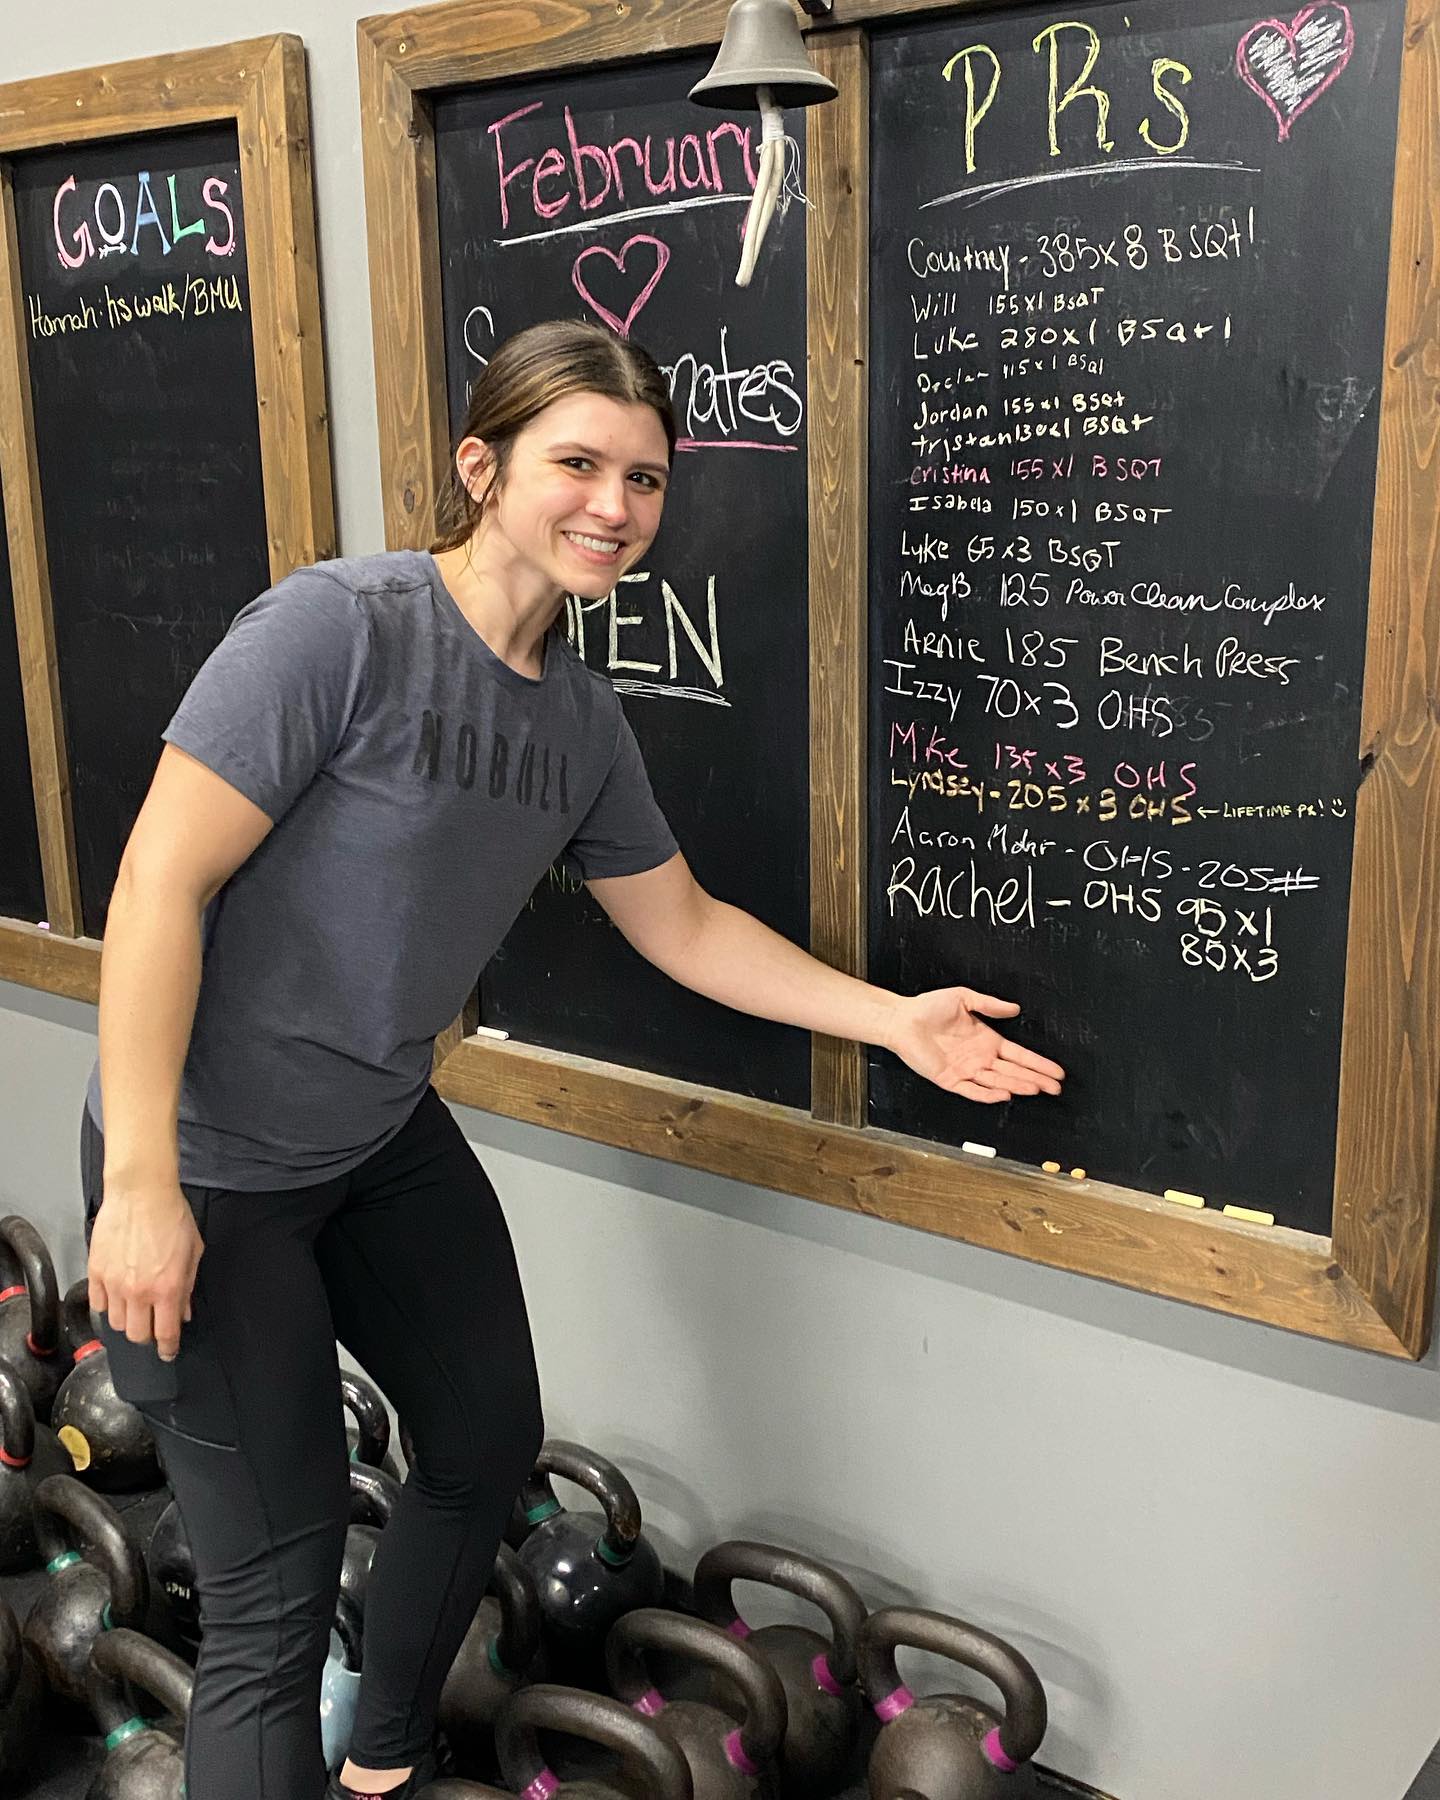 GOALS
Hannah: hs walk/BMU
February
mates
PEN
PR's
Courtney - 385x8 BSQt!
Will 155x1 BSQT
Luke 280x1 BSQt!
Declan 115x1 BSQt
Jordan 155x1 BSQt
tristan 130x1 BSQt
cristina 155x1 BSQT
Isabela 150x1 BSQT
Lyke 65x3 BSQT
MegB 125 Power Clean Complex
Arnie 185 Bench Press
Izzy 70x3 OHS
Mike 135x3 OHS
Lyndsey - 205x3 OHS ← LIFETIME PR! :)
Aaron - OHS - 205#
Rachel - OHS 95x1
85x3
NOBULL